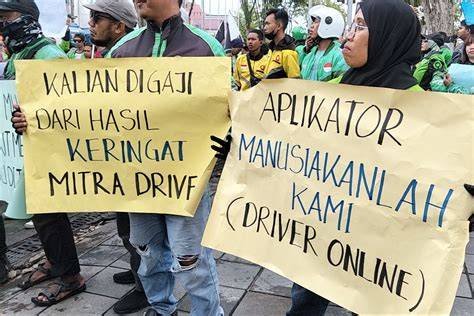 KALIAN DIGAJI
DARI HASIL
KERINGAT
MITRA DRIVE
APLIKATOR
MANUSIAKANLAH
KAMI
(DRIVER ONLINE)